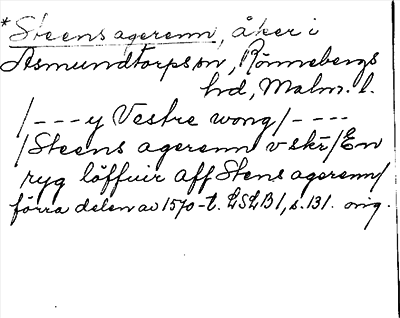 *Steens agerenn, åker i
Asmundtorps sn, Rönnebergs
hd, Malm. l.
/ - - - y Vestre wong / - - - -
/ Steens agerenn v skr / En
ryg löffuir aff Stens agerenn /
förra delen av 1570-t. LSLB I, s. 131. orig.